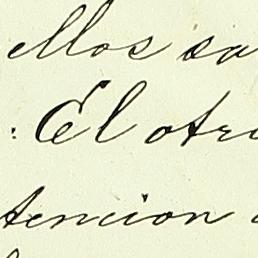 ellos sa
: El otro
tencion